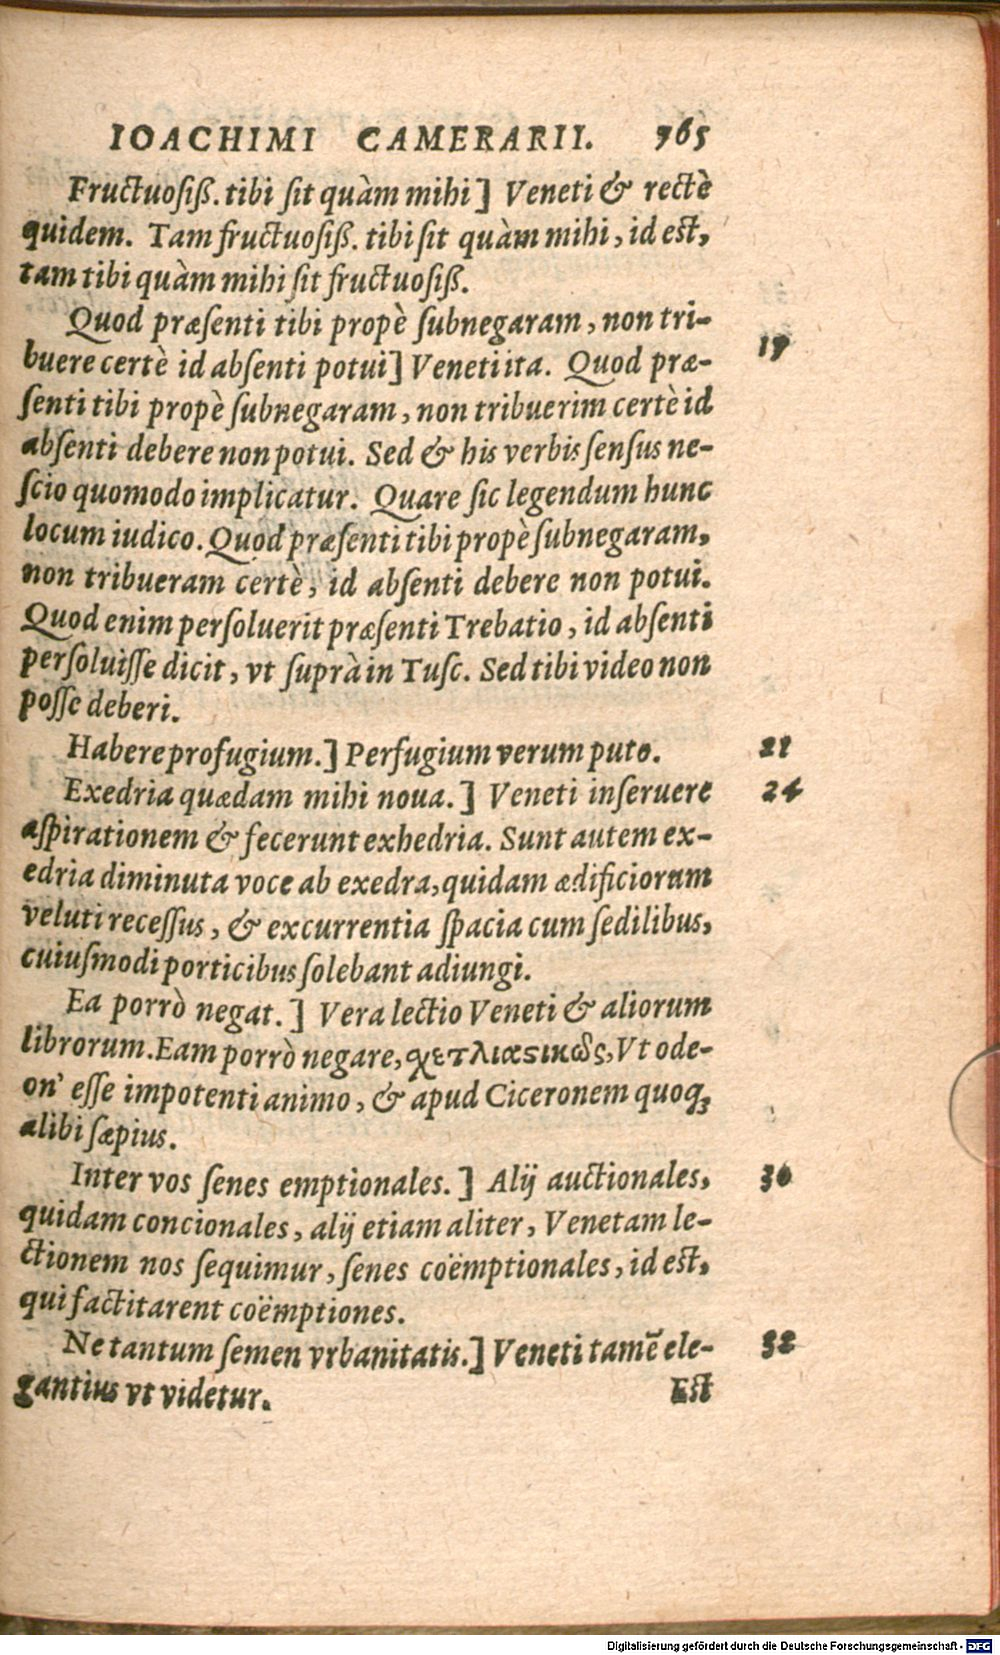 IOACHIMI CAMERARII. 765
Fructuosiß. tibi sit quàm mihi] Veneti & rectè
quidem. Tam fructuosiß. tibi sit quàm mihi, id est,
tam tibi quàm mihi sit fructuosiß.
Quod præsenti tibi propè subnegaram, non tri-
buere certè id absenti potui] Veneti ita. Quod præ- 19
senti tibi propè subnegaram, non tribuerim certè id
absenti debere non potui. Sed & his verbis sensus ne-
scio quomodo implicatur. Quare sic legendum hunc
locum iudico. Quod præsenti tibi propè subnegaram,
non tribueram certè, id absenti debere non potui.
Quod enim persoluerit præsenti Trebatio, id absenti
persoluisse dicit, vt suprà in Tusc. Sed tibi video non
posse deberi.
Habere profugium.] Perfugium verum puto. 21
Exedria quædam mihi noua.] Veneti inseruere 24
aspirationem & fecerunt exhedria. Sunt autem ex-
edria diminuta voce ab exedra, quidam ædificiorum
veluti recessus, & excurrentia spacia cum sedilibus,
cuiusmodi porticibus solebant adiungi.
Ea porrò negat.] Vera lectio Veneti & aliorum
librorum. Eam porrò negare, χετλιαστικῶς, Vt ode-
on' esse impotenti animo, & apud Ciceronem quoq;
alibi sæpius.
Inter vos senes emptionales.] Alij auctionales, 30
quidam concionales, alij etiam aliter, Venetam le-
ctionem nos sequimur, senes coëmptionales, id est,
qui factitarent coëmptiones.
Ne tantum semen vrbanitatis.] Veneti tamē ele- 32
gantius vt videtur. Est
Digitalisierung gefördert durch die Deutsche Forschungsgemeinschaft - DFG